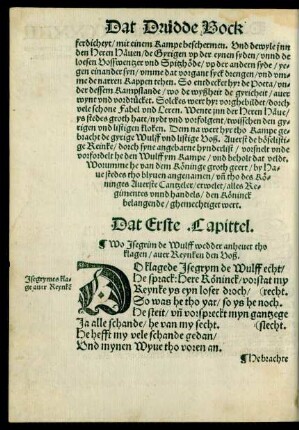 Dat Drüdde Bock
ferdicheyt / mit einem Kampe beschermen. Vnd dewyle jnn
den Heren Häuen / de Gyrigen vp der eynen syden / vnnd de
loesen Boßwentzer vnd Spitzhöde / vp der andern syde / ye-
gen einander sen / vmme dat vorgant syck drengen / vnd vm-
me de narren Kappen tehen. So entdecket hyr de Poeta / vn-
der dessem Kampstande / wo de wyßheit de gyricheit / auer
wynt vnd vordrückt. Solckes wert hyr vorgebildet / dorch
vele schone Fabel vnd Leren. Wente jnn der Heren Häue /
ys stedes groth hatt / nydt vnd vorfolgent / twisschen den gy-
rigen vnd listigen Roken. Den na wert hyr tho Kampe ge-
bracht de gyrige Wulff vnd listige Voß. Auerst de böselisti-
ge Reinke / dorch syne angebarne hynderlist / vorsnelt vnde
vorfordelt he den Wulff ym Kampe / vnd beholt dat velde.
Worumme he van dem Köninge groth geert / by Ha-
ue stedes tho blyuen angenamen / vñ tho des Kö-
ninges Auerste Cantzeler / erwelet / alles Re-
gimentes vnnd handels / den Köninck
belangende / ghemechtiget wert.
Dat Erste Capittel.
¶ Wo Jsegrim de Wulff wedder anheuet tho
klagen / auer Reynken den Voß.
Jsegrymes kla-
ge auer Reynkẽ
DO klagede Jsegrym de Wulff echt /
He sprack: Here Köninck / vorstat my
Reynke ys eyn loser droch / (recht.
So was he tho yar / so ys he noch.
He steit / vñ vorspreckt myn gantzege
Ja alle schande / he van my secht. (slecht.
He hefft my vele schande gedan /
Vnd mynen Wyue tho voren an.
¶ Nebrachre